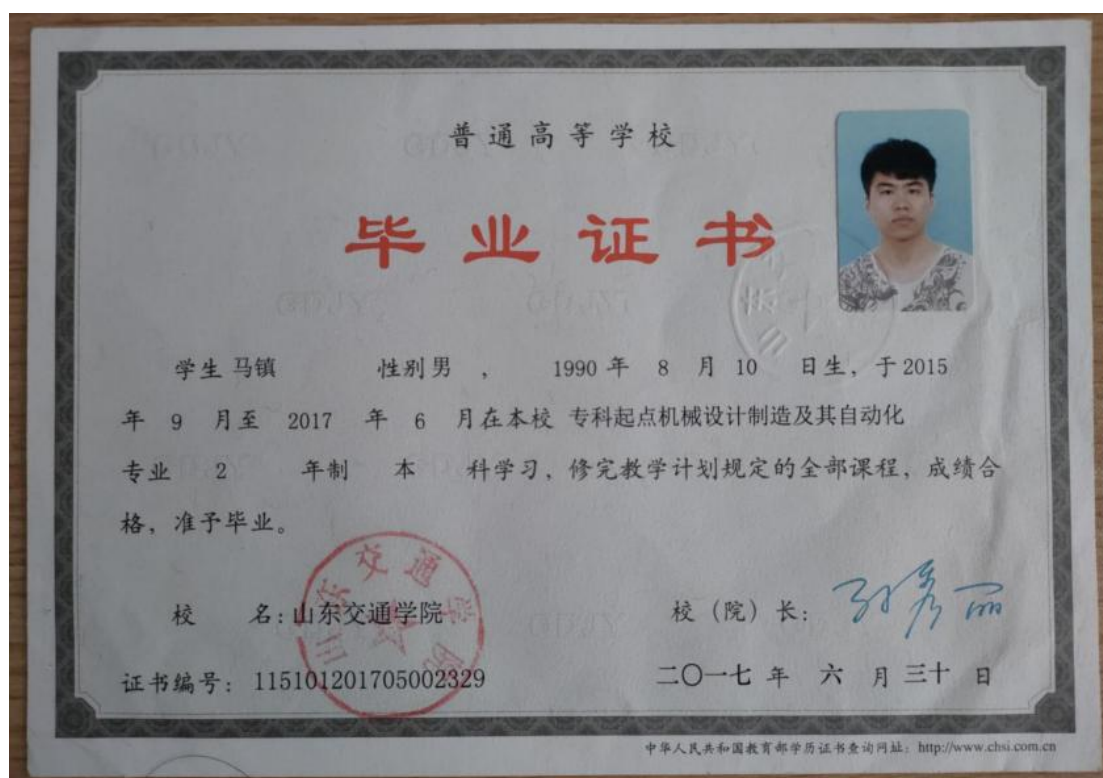 普通高等学校
毕业证书
学生 马镇 性别 男 , 1990 年 8 月 10 日生，于 2015
年 9 月至 2017 年 6 月在本校 专科起点机械设计制造及其自动化
专业 2 年制 本 科学习，修完教学计划规定的全部课程，成绩合
格，准予毕业。
山东交通学院
校 名：山东交通学院 校（院）长：
证书编号：115101201705002329 二〇一七 年 六 月 三十 日
中华人民共和国教育部学历证书查询网址：http://www.chsi.com.cn